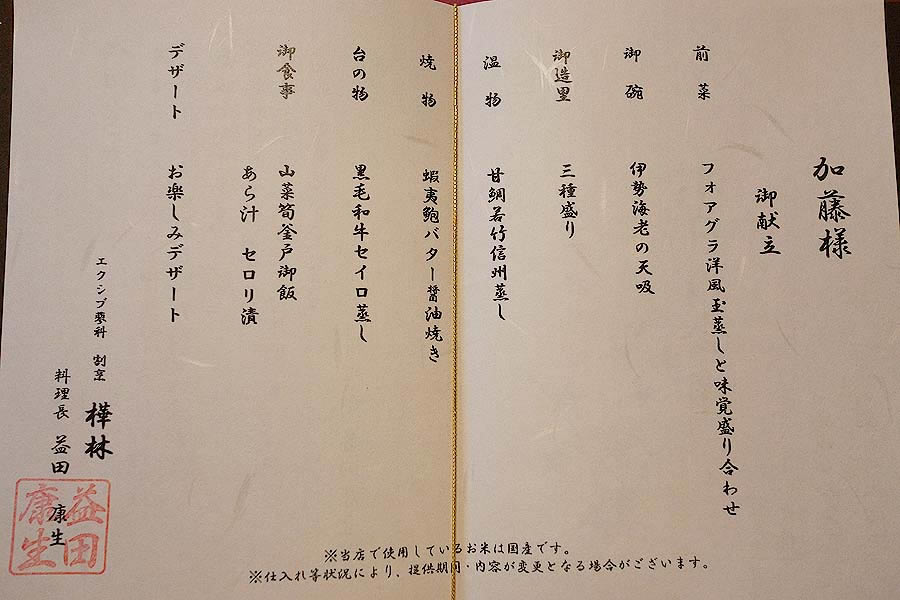 加藤様
御献立
前菜 フォアグラ洋風玉蒸しと味覚盛り合わせ
御碗 伊勢海老の天吸
御造里 三種盛り
温物 甘鯛若竹信州蒸し
焼物 蝦夷鮑バター醤油焼き
台の物 黒毛和牛セイロ蒸し
御食事 山菜筍釜戸御飯
あら汁 セロリ漬
デザート お楽しみデザート
エクシブ蓼科 割烹 樺林
料理長 益田 康生
益田
康生
※当店で使用しているお米は国産です。
※仕入れ等状況により、提供期間・内容が変更となる場合がございます。